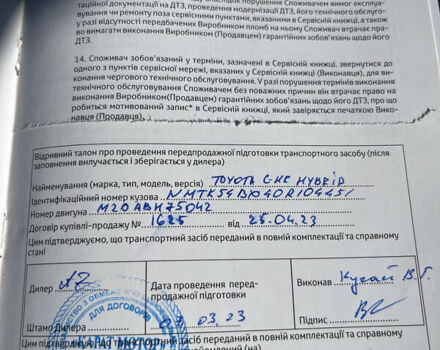 таційної документації на ДТЗ, проведення модернізації ДТЗ, його технічного обслуго-
вування чи ремонту поза сервісними пунктами, вказаними в Сервісній книжці, а також
у разі відсутності передбачених Виробником пломб на ньому Споживач втрачає пра-
во вимагати виконання Виробником (Продавцем) гарантійних зобов'язань щодо його
ДТЗ.
14. Споживач зобов'язаний у терміни, зазначені в Сервісній книжці, звернутися до
одного з пунктів сервісної мережі, вказаних у Сервісній книжці (Виконавця), для ви-
конання чергового технічного обслуговування. У разі порушення термінів виконання
технічного обслуговування Споживачем без поважних причин він втрачає право на
виконання Виробником(Продавцем) гарантійних зобов'язань щодо його ДТЗ, про що
робиться мотивований запис* в Сервісній книжці, який завіряється печаткою Вико-
навця (Продавця).
Відривний талон про проведення передпродажної підготовки транспортного засобу (після
заповнення вилучається і зберігається у дилера)
Найменування (марка, тип, модель, версія) TOYOTA C-HR HYBRID
Ідентифікаційний номер кузова NMTK54BX40R104451
Номер двигуна M20ABH75042
Договір купівлі-продажу № 1625 від 25.04.23
Цим підтверджуємо, що транспортний засіб переданий в повній комплектації та справному
стані
Дилер
Дата проведення перед-
продажної підготовки
Виконав Кугай В.Г.
03.23
Штамп Дилера
Підпис
ДЛЯ ДОГОВОРІВ
Цим підтверджую, що транспортний засіб переданий в повній комплектації та справному